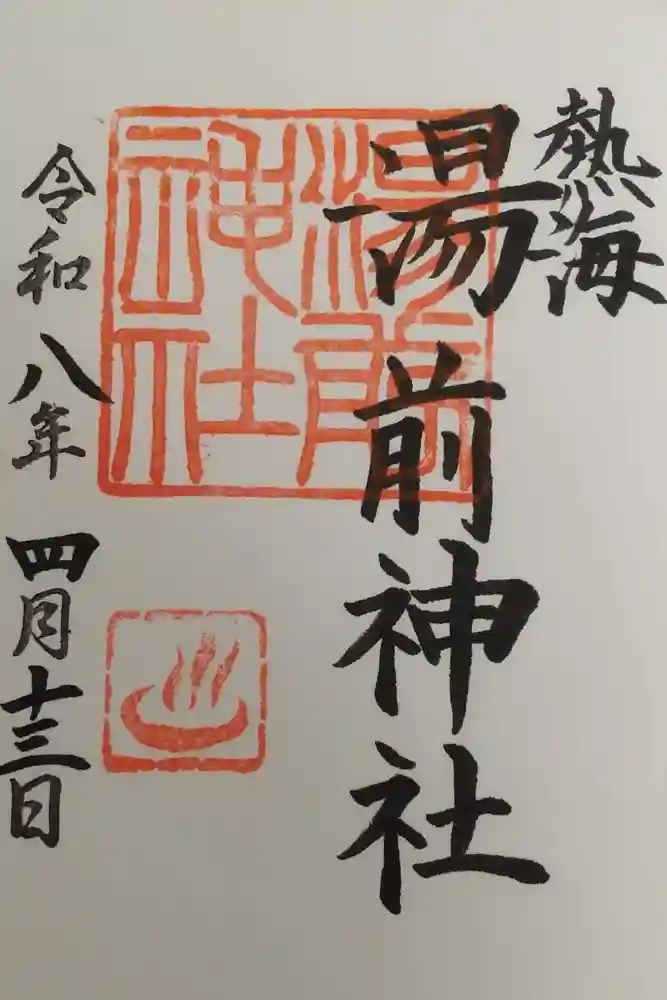 熱海
湯前神社
湯前
神社
令和八年四月十三日